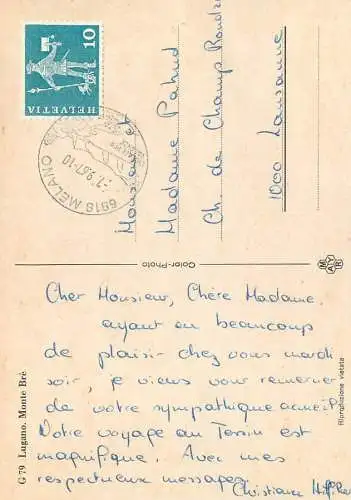 10
HELVETIA
6919 MELANO
-7.9.67-10
Monsieur et
Madame Pahud
Ch. de Champ Rond
1000 Lausanne
Color-Photo
MAYR
Cher Monsieur, Chère Madame,
ayant eu beaucoup
de plaisir chez vous mardi
soir, je viens vous remercier
de votre sympathique accueil.
Votre voyage au Tessin est
magnifique. Avec mes
respectueux messages.
Christiane
G 79 Lugano. Monte Brè
Riproduzione vietata